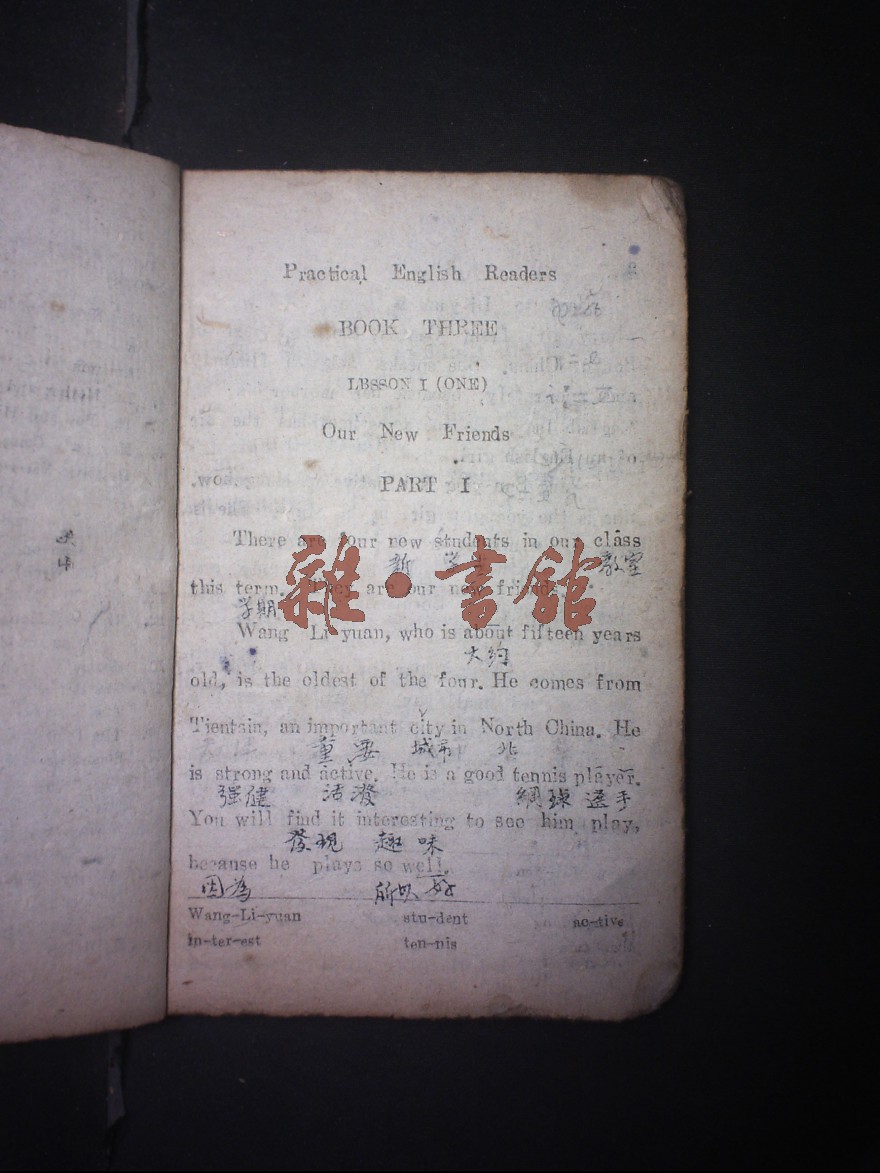 Practical English Readers
BOOK THREE
LBSSON I (ONE)
Our New Friends
PART I
There are four new students in our class
新 教室
this term. They are our new friends.
学期
Wang Li-yuan, who is about fifteen years
大约
old, is the oldest of the four. He comes from
Tientsin, an important city in North China. He
重要 城市 北
is strong and active. He is a good tennis player.
强健 活潑 網球 选手
You will find it interesting to see him play,
發現 趣味
because he plays so well.
因為 所以 好
Wang-Li-yuan stu-dent ac-tive
in-ter-est ten-nis
雜·書館